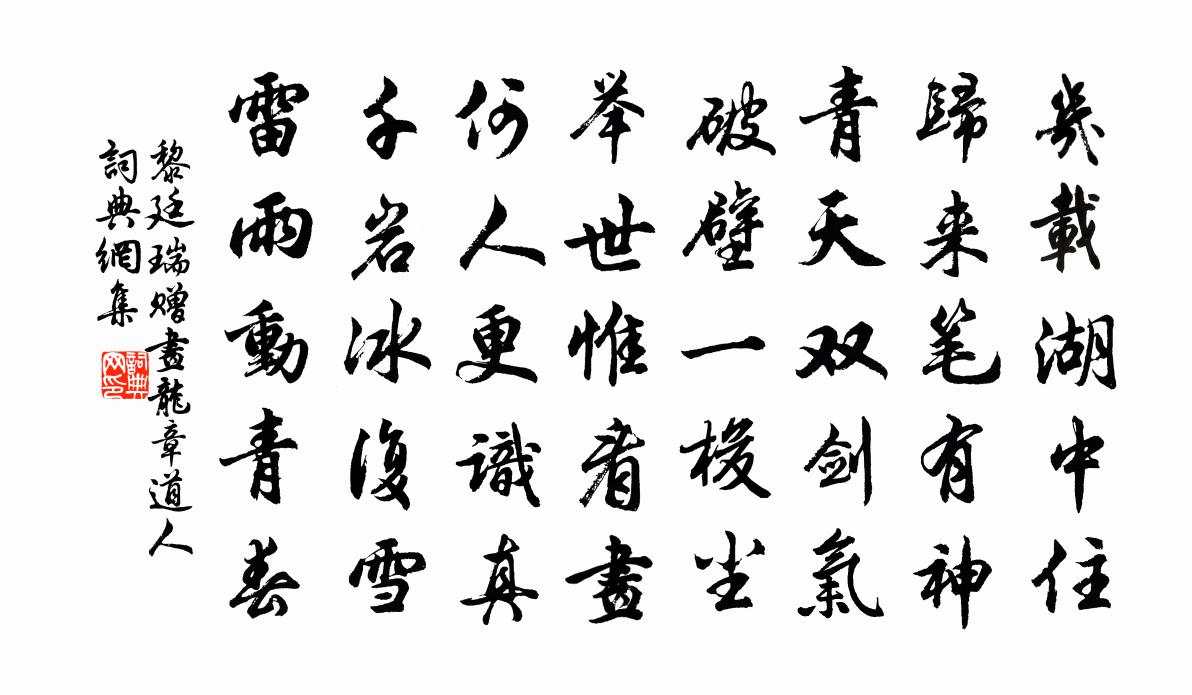 幾載湖中住
歸来笔有神
青天双剑氣
破壁一梭尘
举世惟看畫
何人更識真
千岩冰復雪
雷雨動青春
黎廷瑞赠畫龍章道人
詞典網集
詞典网印